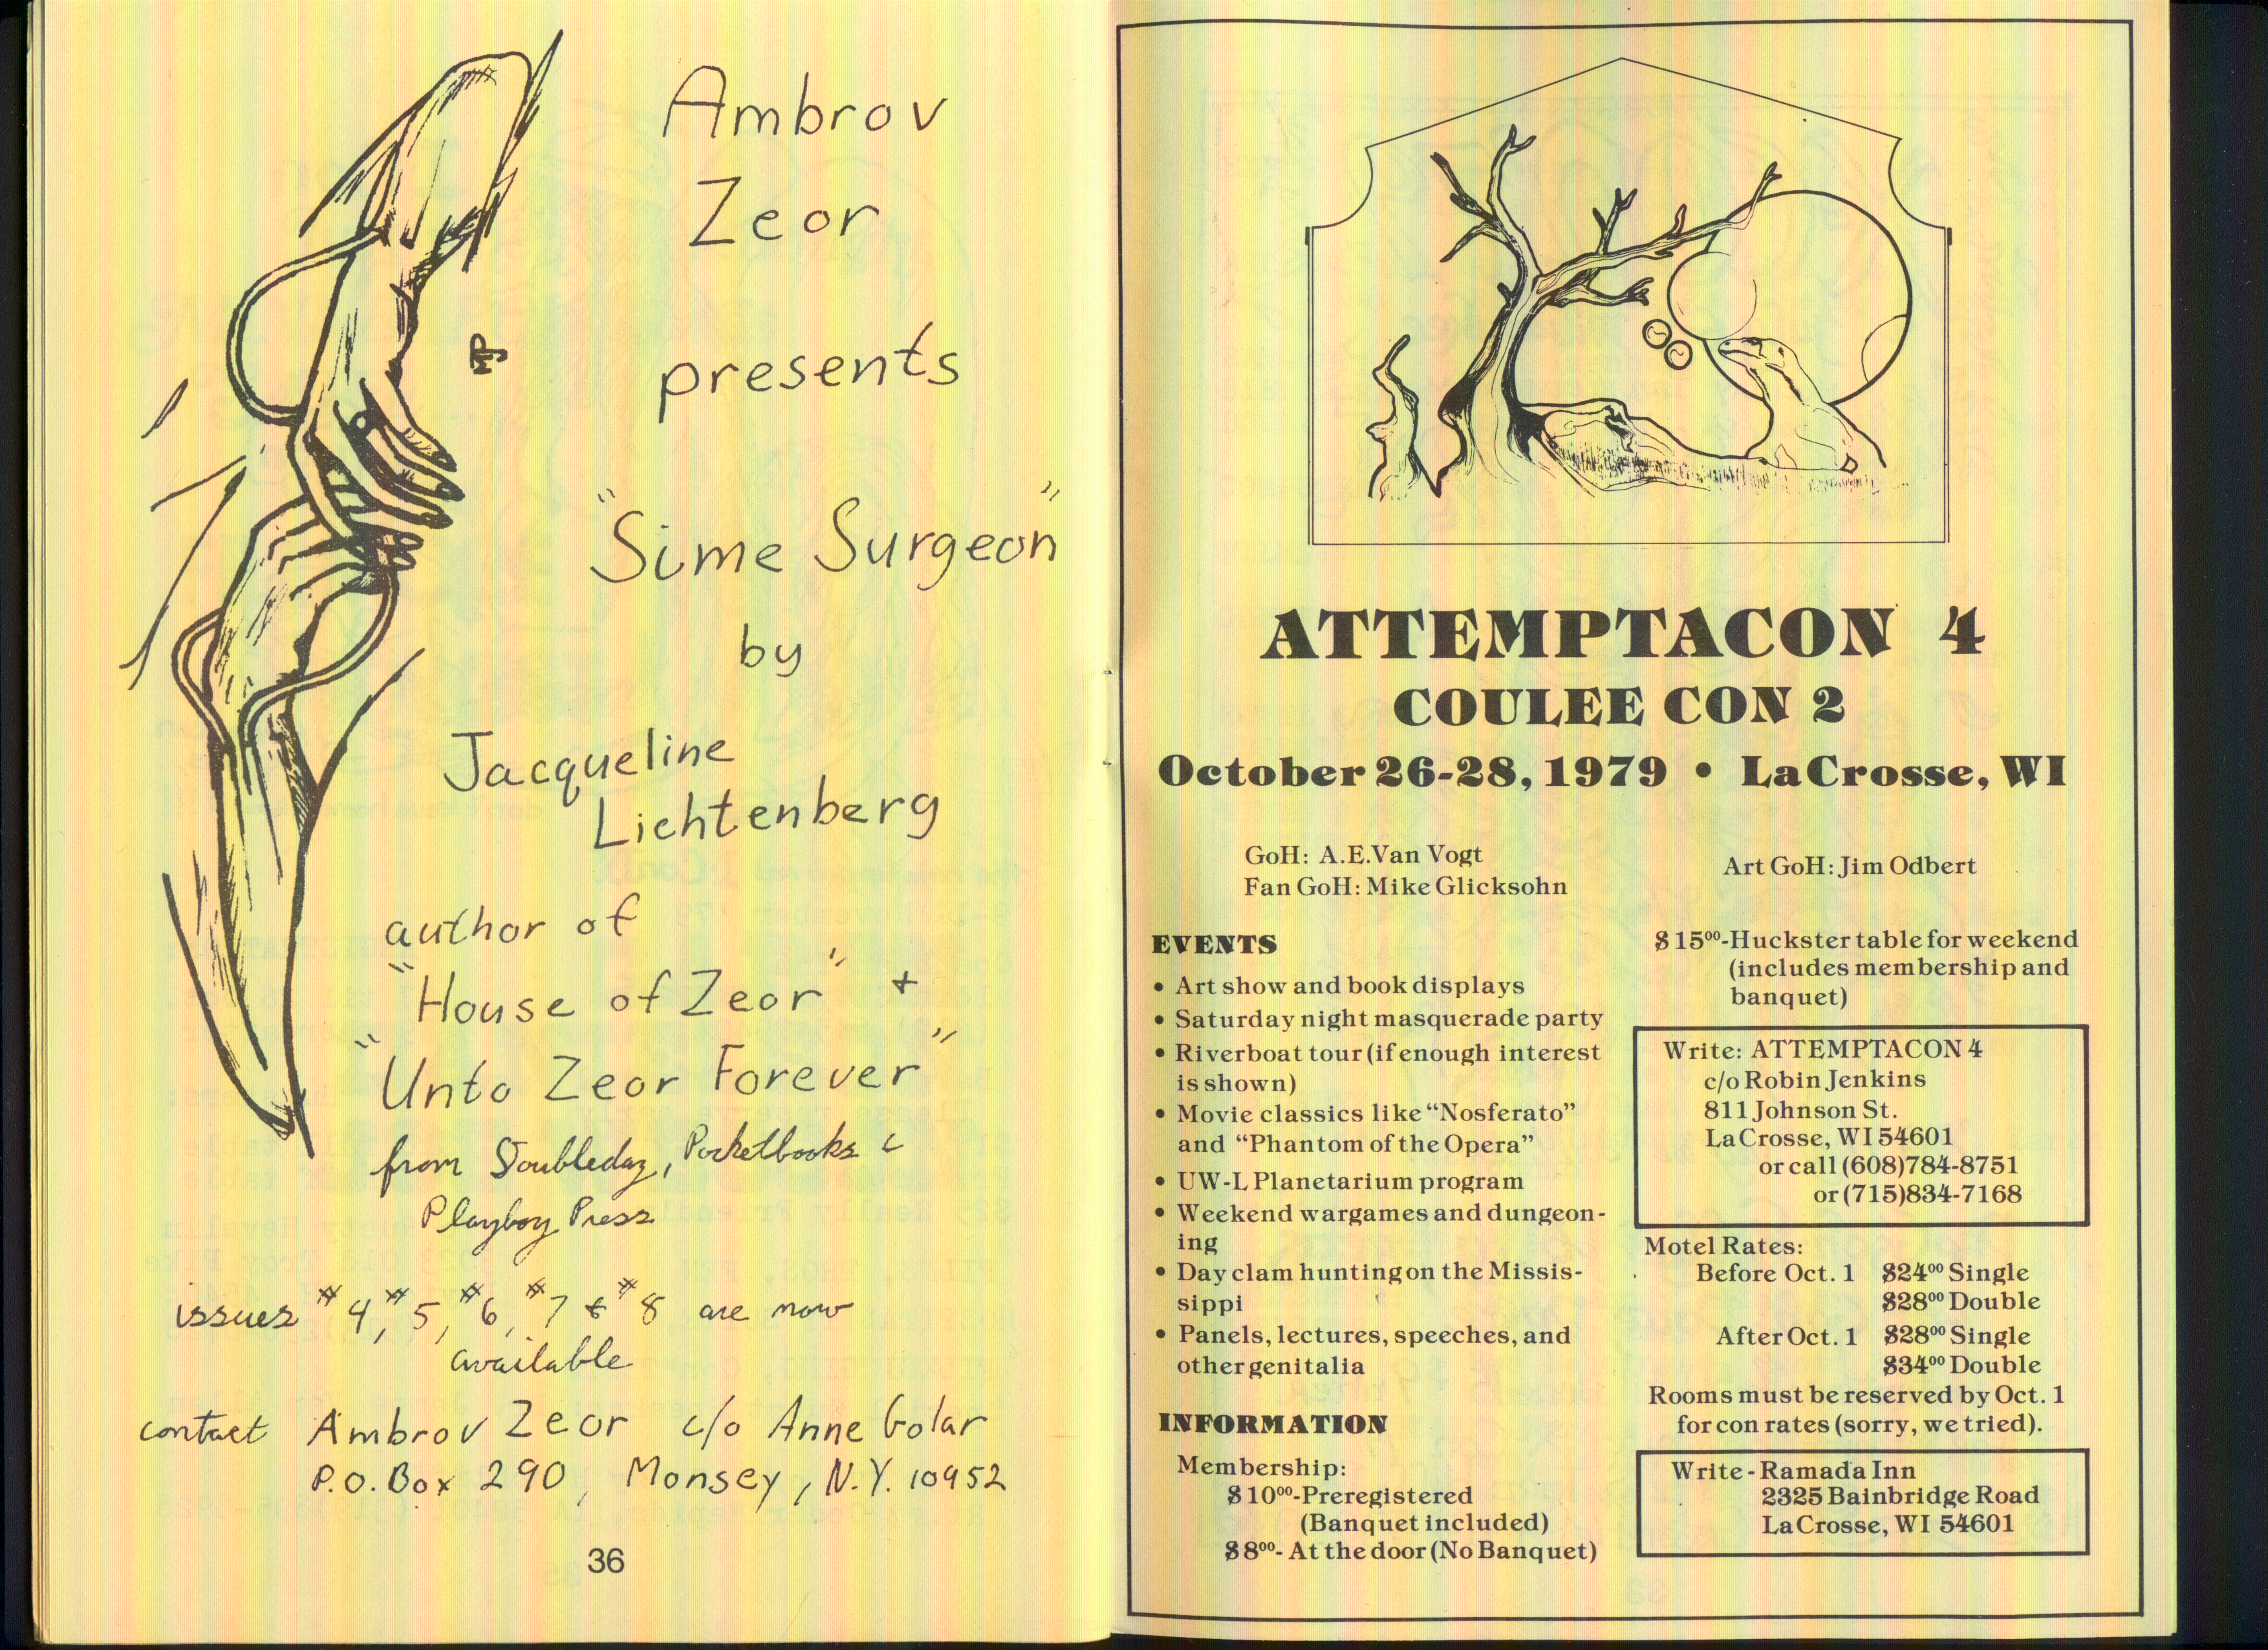 Ambrov
Zeor
presents
"Sime Surgeon"
by
Jacqueline
Lichtenberg
author of
"House of Zeor" +
"Unto Zeor Forever"
from Doubleday, Pocketbooks &
Playboy Press
issues #4, #5, #6, #7 & #8 are now
available
contact Ambrov Zeor c/o Anne Golar
P.O. Box 290, Monsey, N.Y. 10952
36
ATTEMPTACON 4
COULEE CON 2
October 26-28, 1979 • LaCrosse, WI
GoH: A.E. Van Vogt
Fan GoH: Mike Glicksohn
Art GoH: Jim Odbert
EVENTS
• Art show and book displays
• Saturday night masquerade party
• Riverboat tour (if enough interest
is shown)
• Movie classics like "Nosferato"
and "Phantom of the Opera"
• UW-L Planetarium program
• Weekend wargames and dungeon-
ing
• Day clam hunting on the Missis-
sippi
• Panels, lectures, speeches, and
other genitalia
INFORMATION
Membership:
$10⁰⁰-Preregistered
(Banquet included)
$8⁰⁰- At the door (No Banquet)
$15⁰⁰-Huckster table for weekend
(includes membership and
banquet)
Write: ATTEMPTACON 4
c/o Robin Jenkins
811 Johnson St.
LaCrosse, WI 54601
or call (608)784-8751
or (715)834-7168
Motel Rates:
Before Oct. 1 $24⁰⁰ Single
$28⁰⁰ Double
After Oct. 1 $28⁰⁰ Single
$34⁰⁰ Double
Rooms must be reserved by Oct. 1
for con rates (sorry, we tried).
Write - Ramada Inn
2325 Bainbridge Road
LaCrosse, WI 54601